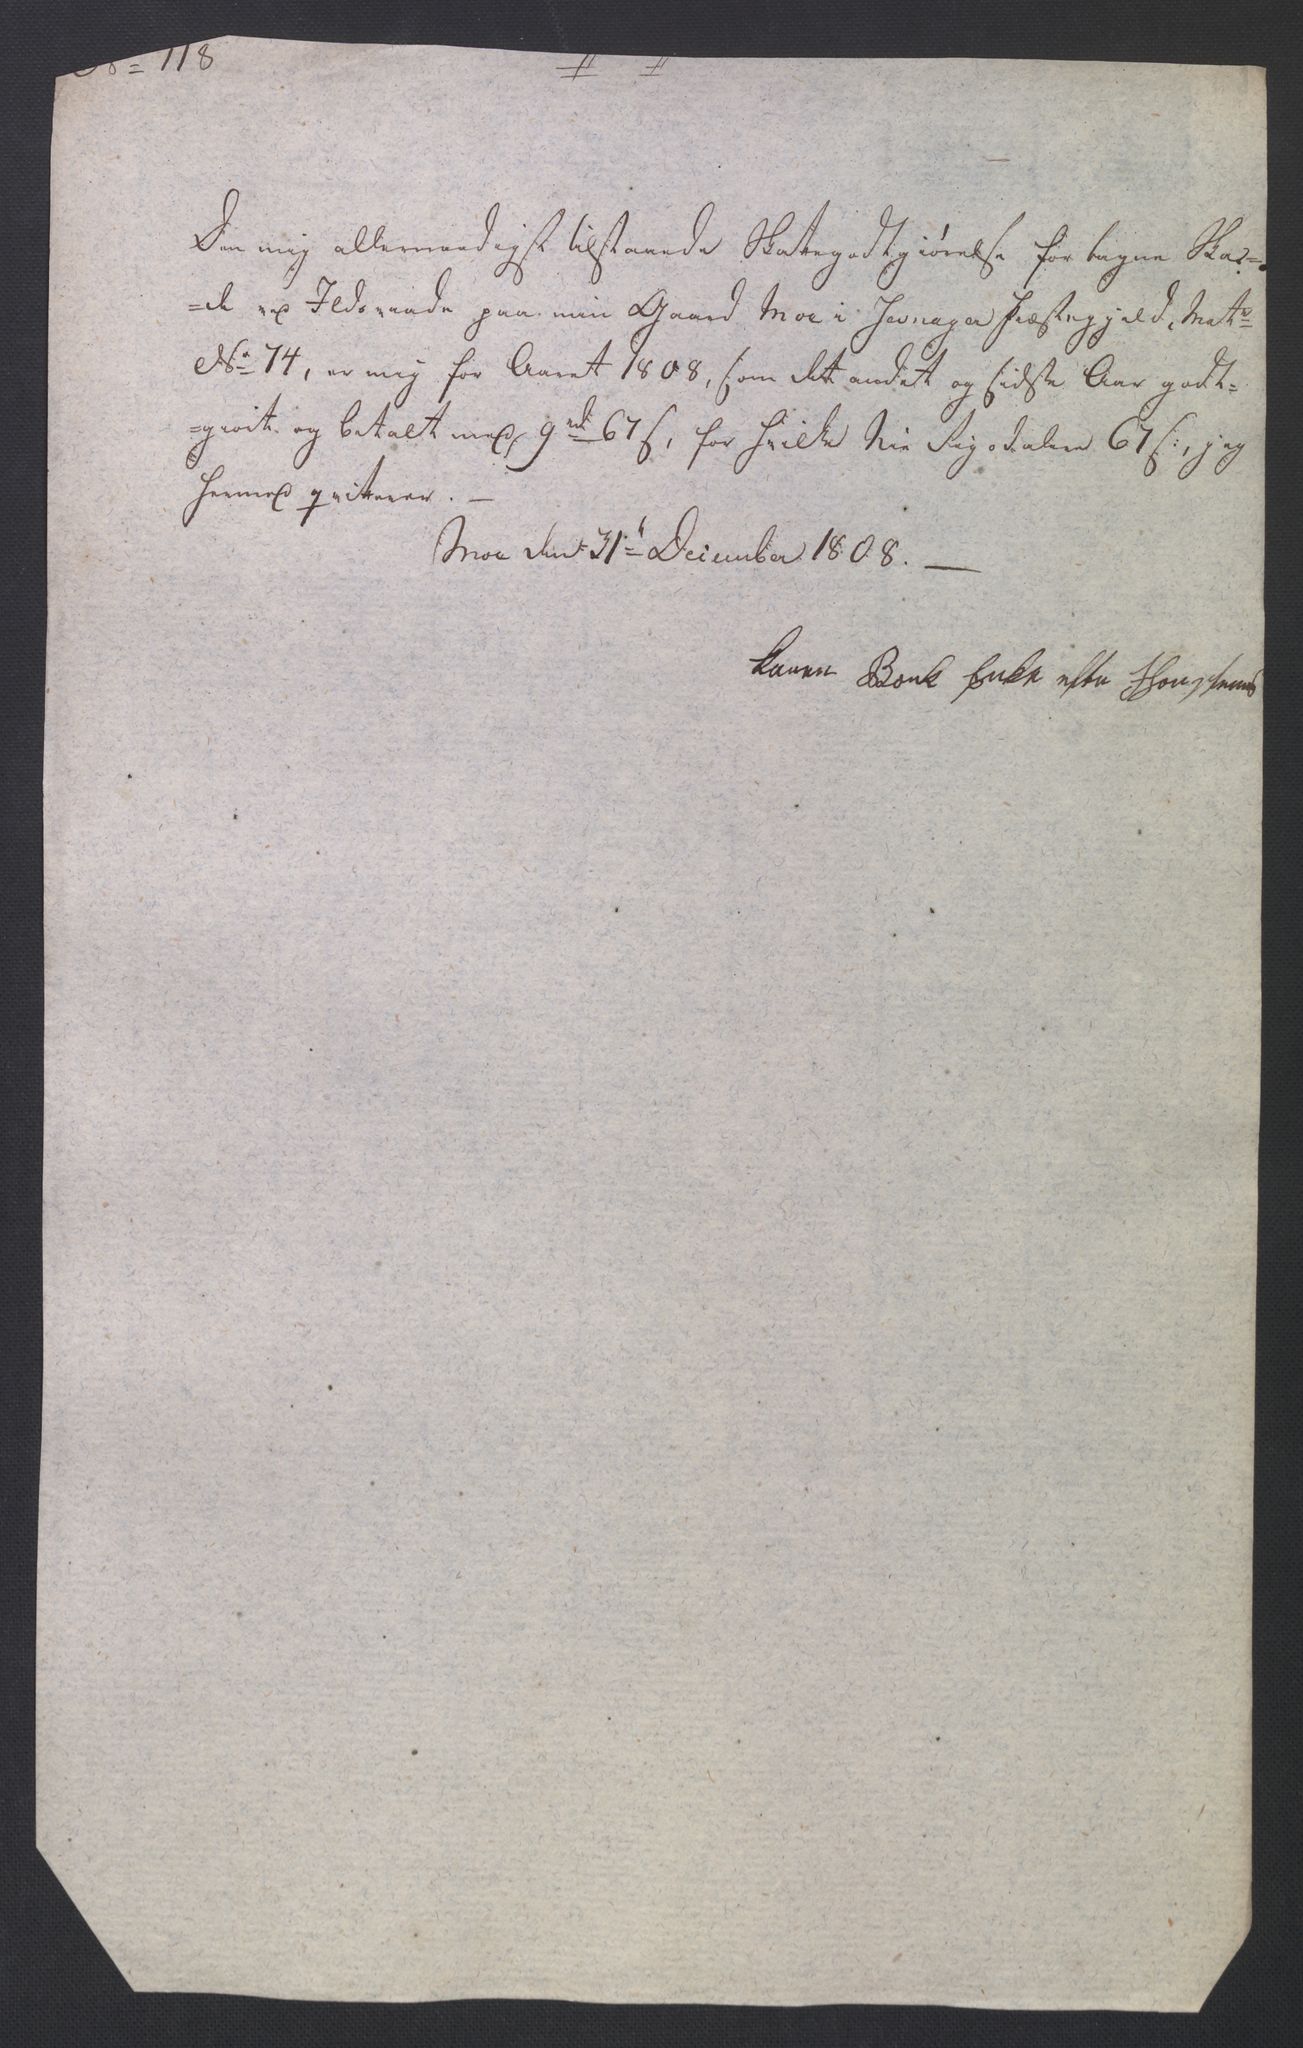 No 118
Den mig allernaadigst tilstaaede Skattegodtgiørelse for tagne Ska=
=de ved Ildsvaade paa min Gaard Moe i Jevnager Præstegjeld, Matr
No 74, er mig for Aaret 1808, som det andet og sidste Aar godt=
=giort og betalt med 9 rd 67 s, for hvilke Nie Rigsdalere 67 s:, jeg
hermed qviterer. —
Moe den 31te December 1808. —
Karen Bonk Enke efter